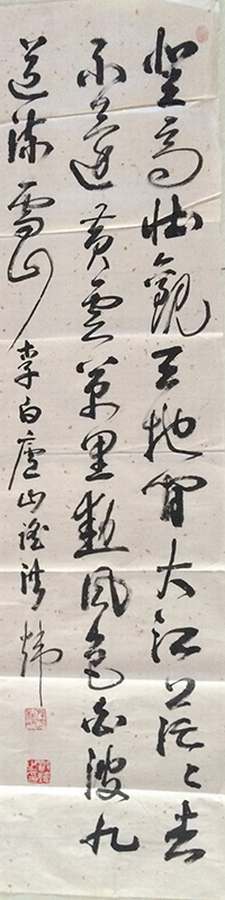 登高壮觀天地間大江茫〻去
不還黄雲萬里動風色白波九
道流雪山 李白廬山謠 煒